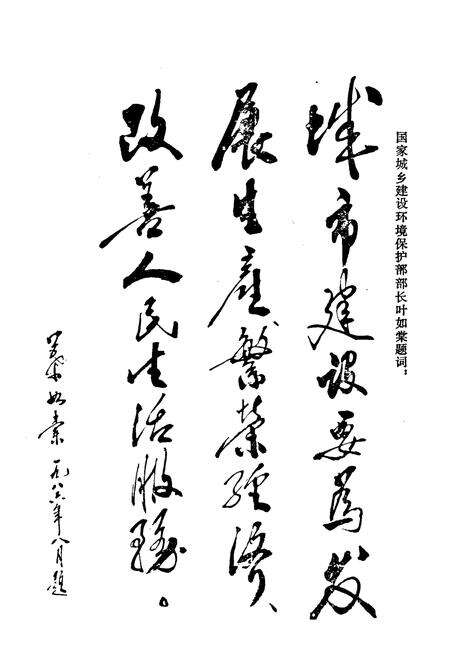 国家城乡建设环境保护部部长叶如棠题词：
城市建设要為发
展生產繁荣经济、
改善人民生活服務。
葉如棠 一九八六年八月题